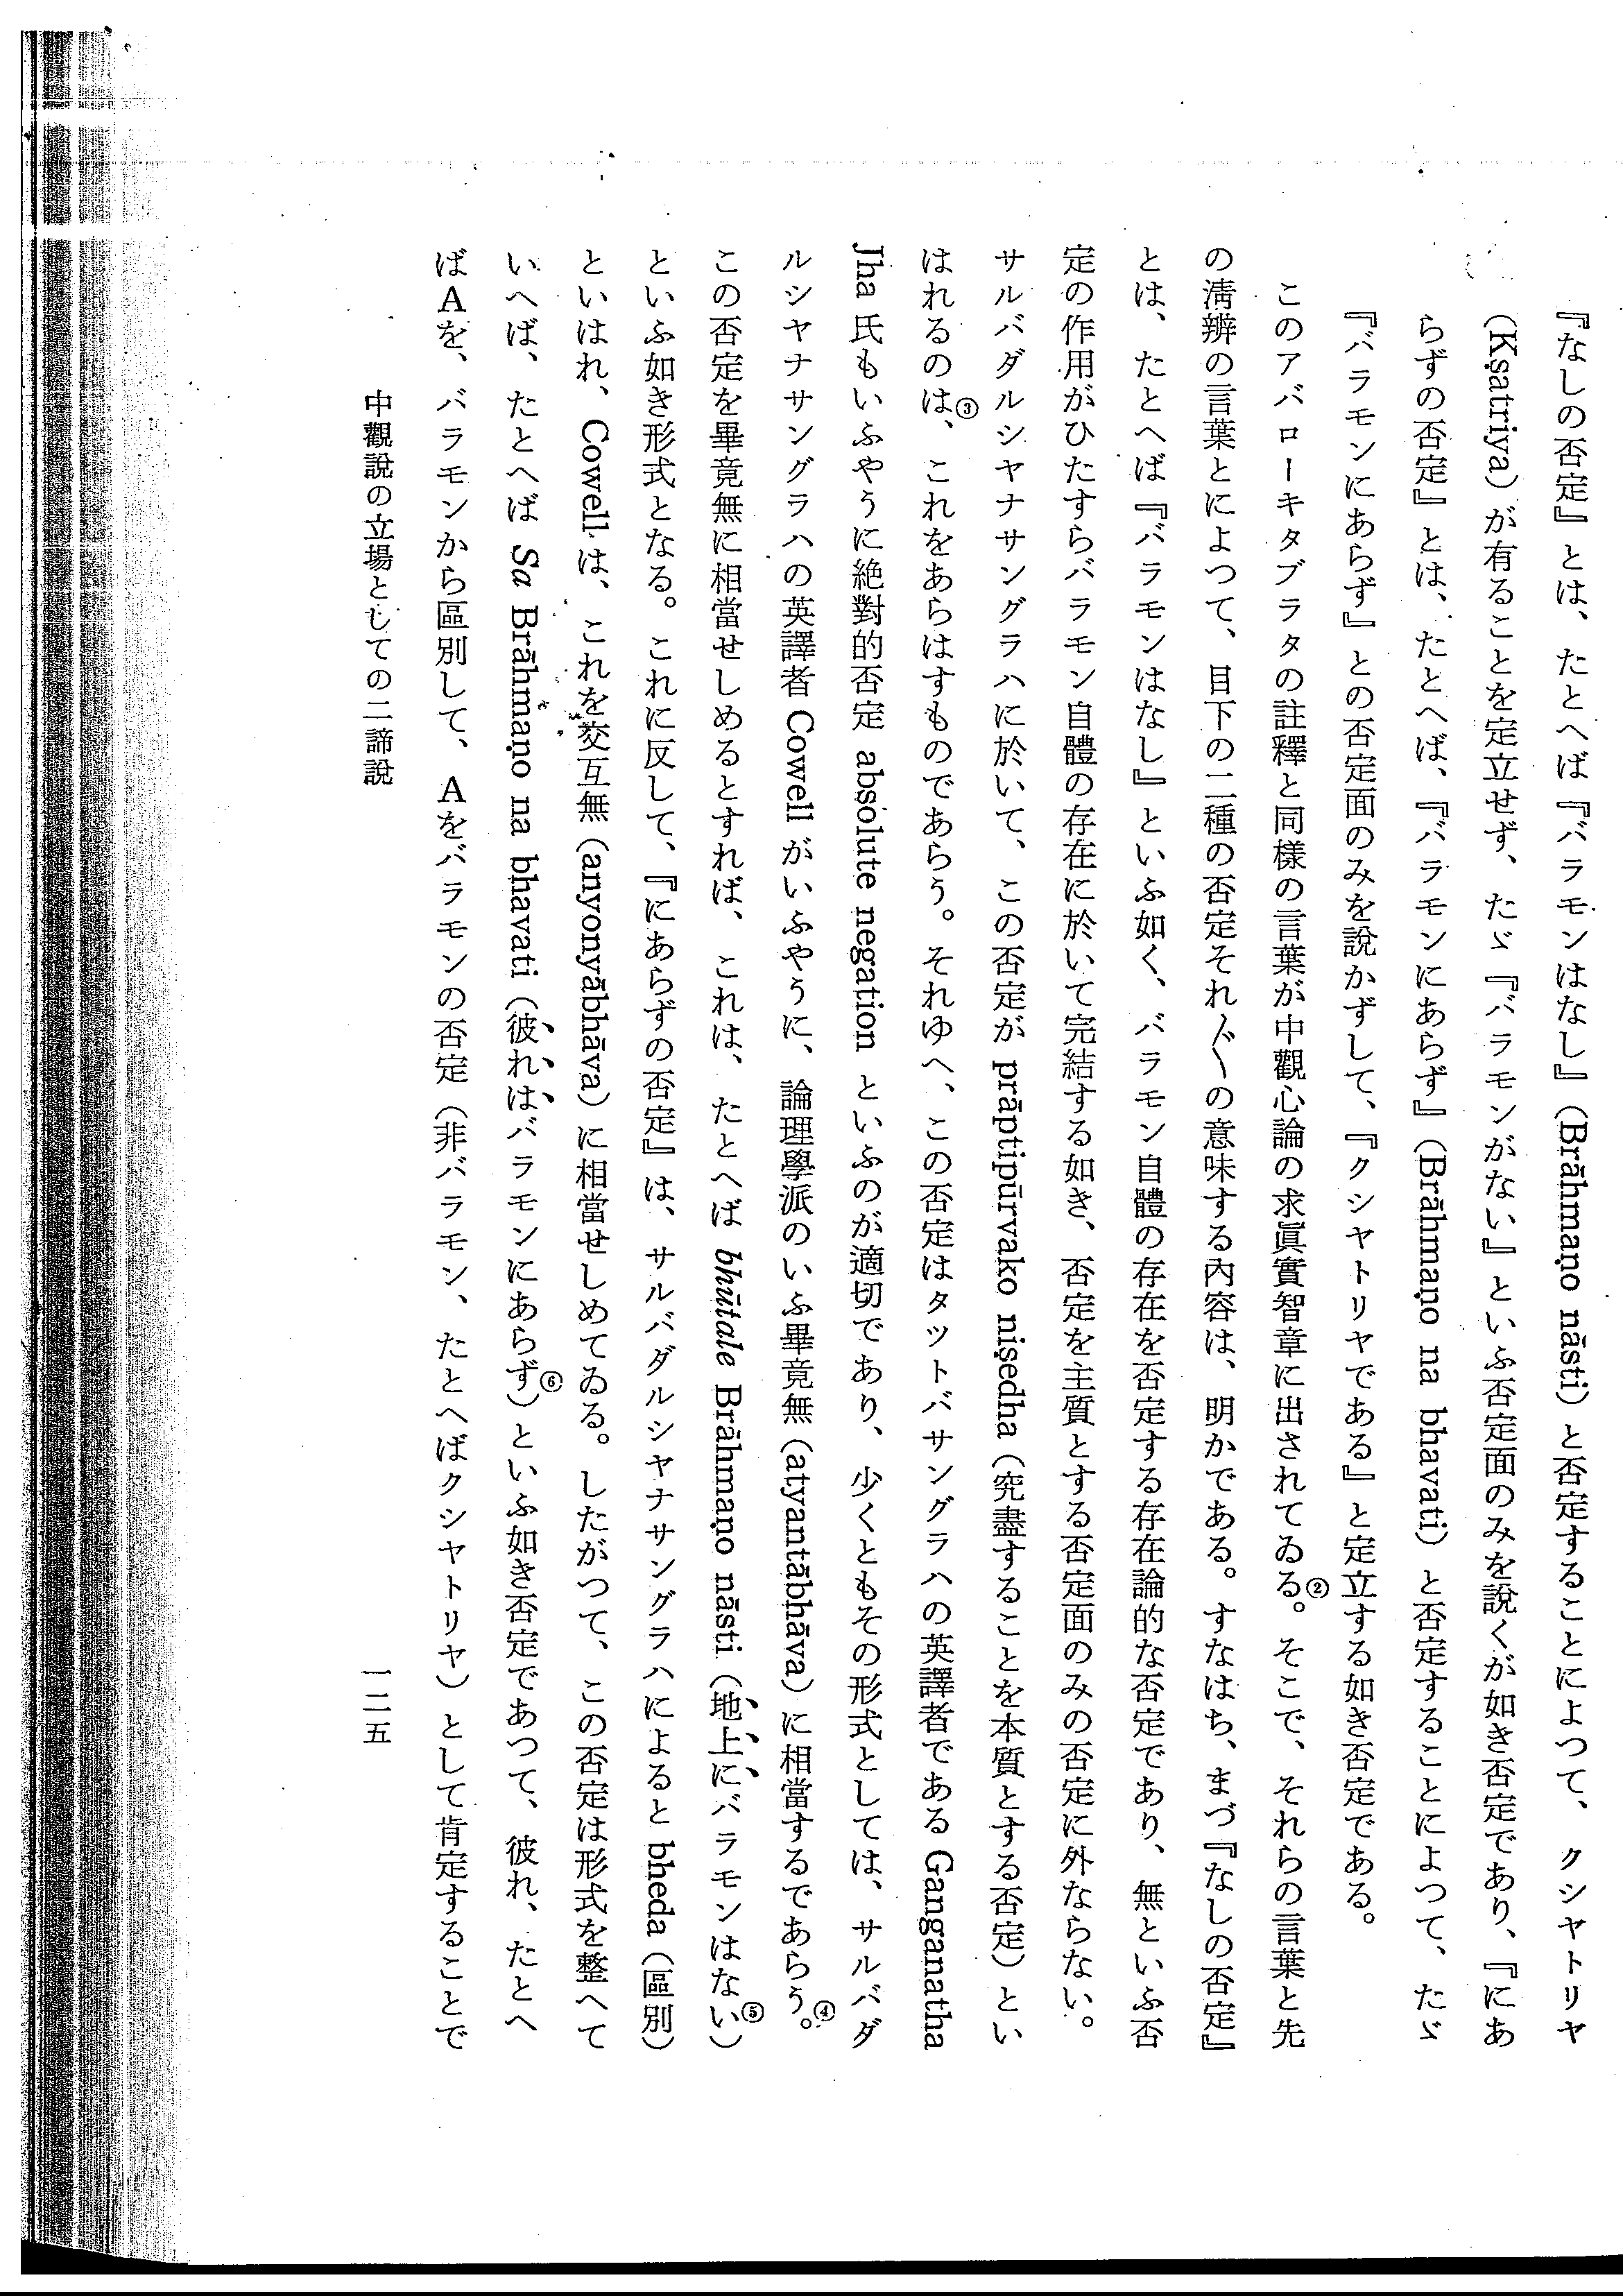 『なしの否定』とは、たとへば『バラモンはなし』（Brāhmaṇo nāsti）と否定することによつて、クシヤトリヤ
（Kṣatriya）が有ることを定立せず、たゞ『バラモンがない』といふ否定面のみを説くが如き否定であり、『にあ
らずの否定』とは、たとへば、『バラモンにあらず』（Brāhmaṇo na bhavati）と否定することによつて、たゞ
『バラモンにあらず』との否定面のみを説かずして、『クシヤトリヤである』と定立する如き否定である。
このアバローキタブラタの註釋と同樣の言葉が中觀心論の求眞實智章に出されてゐる②。そこで、それらの言葉と先
の淸辨の言葉とによつて、目下の二種の否定それ〴〵の意味する內容は、明かである。すなはち、まづ『なしの否定』
とは、たとへば『バラモンはなし』といふ如く、バラモン自體の存在を否定する存在論的な否定であり、無といふ否
定の作用がひたすらバラモン自體の存在に於いて完結する如き、否定を主質とする否定面のみの否定に外ならない。
サルバダルシヤナサングラハに於いて、この否定が prāptipūrvako niṣedha（究盡することを本質とする否定）とい
はれるのは③、これをあらはすものであらう。それゆへ、この否定はタットバサングラハの英譯者である Ganganatha
Jha 氏もいふやうに絶對的否定 absolute negation といふのが適切であり、少くともその形式としては、サルバダ
ルシヤナサングラハの英譯者 Cowell がいふやうに、論理學派のいふ畢竟無（atyantābhāva）に相當するであらう④。
この否定を畢竟無に相當せしめるとすれば、これは、たとへば bhūtale Brāhmaṇo nāsti（地上にバラモンはない⑤）
といふ如き形式となる。これに反して、『にあらずの否定』は、サルバダルシヤナサングラハによると bheda（區別）
といはれ、Cowell は、これを交互無（anyonyābhāva）に相當せしめてゐる。したがつて、この否定は形式を整へて
いへば、たとへば Sa Brāhmaṇo na bhavati（彼れはバラモンにあらず⑥）といふ如き否定であつて、彼れ、たとへ
ばAを、バラモンから區別して、Aをバラモンの否定（非バラモン、たとへばクシヤトリヤ）として肯定することで
中觀說の立場としての二諦說
一二五